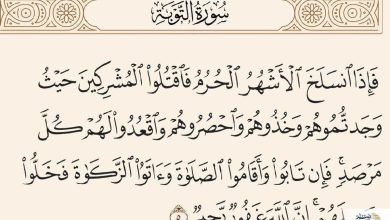 سُورَةُ التَّوْبَةِ
فَإِذَا ٱنسَلَخَ ٱلْأَشْهُرُ ٱلْحُرُمُ فَٱقْتُلُوا۟ ٱلْمُشْرِكِينَ حَيْثُ
وَجَدتُّمُوهُمْ وَخُذُوهُمْ وَٱحْصُرُوهُمْ وَٱقْعُدُوا۟ لَهُمْ كُلَّ
مَرْصَدٍ ۚ فَإِن تَابُوا۟ وَأَقَامُوا۟ ٱلصَّلَوٰةَ وَءَاتَوُا۟ ٱلزَّكَوٰةَ فَخَلُّوا۟
لَهُمْ ۚ إِنَّ ٱللَّهَ غَفُورٌ رَّحِيمٌ ٥